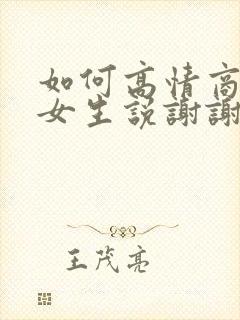 如何高情商
女生说謝謝
王茂亮